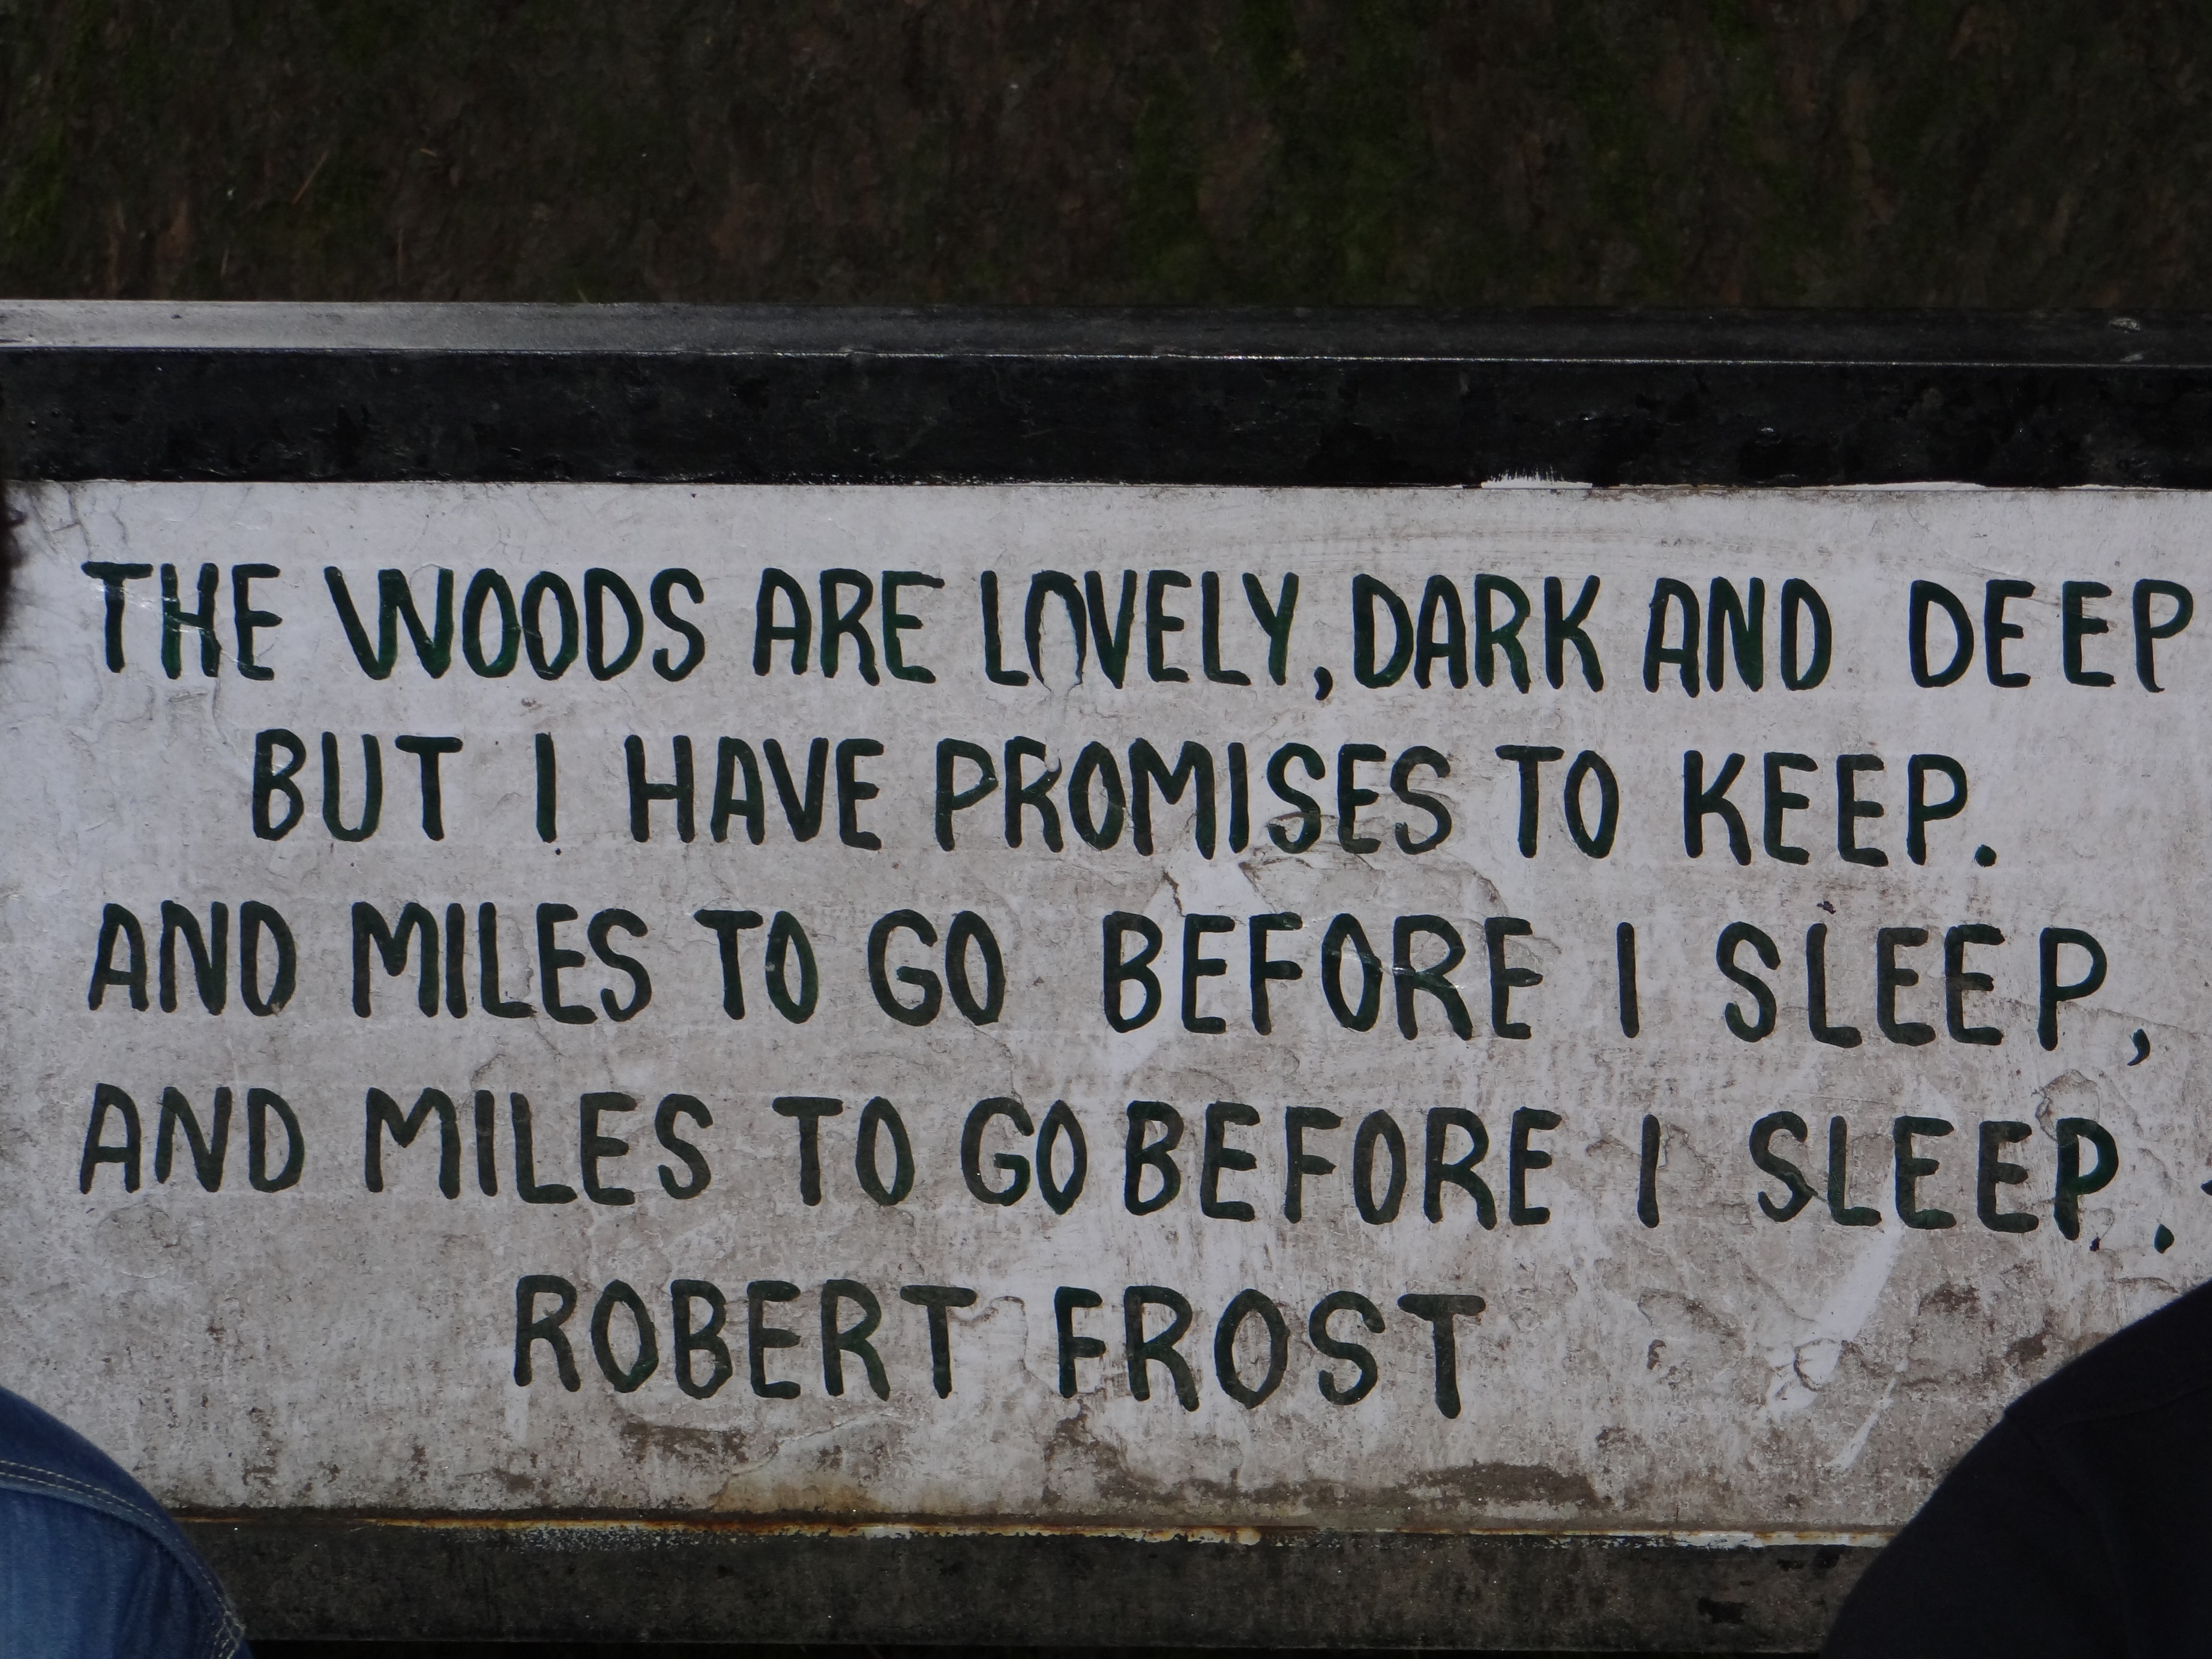 THE WOODS ARE LOVELY, DARK AND DEEP
BUT I HAVE PROMISES TO KEEP.
AND MILES TO GO BEFORE I SLEEP,
AND MILES TO GO BEFORE I SLEEP.
ROBERT FROST